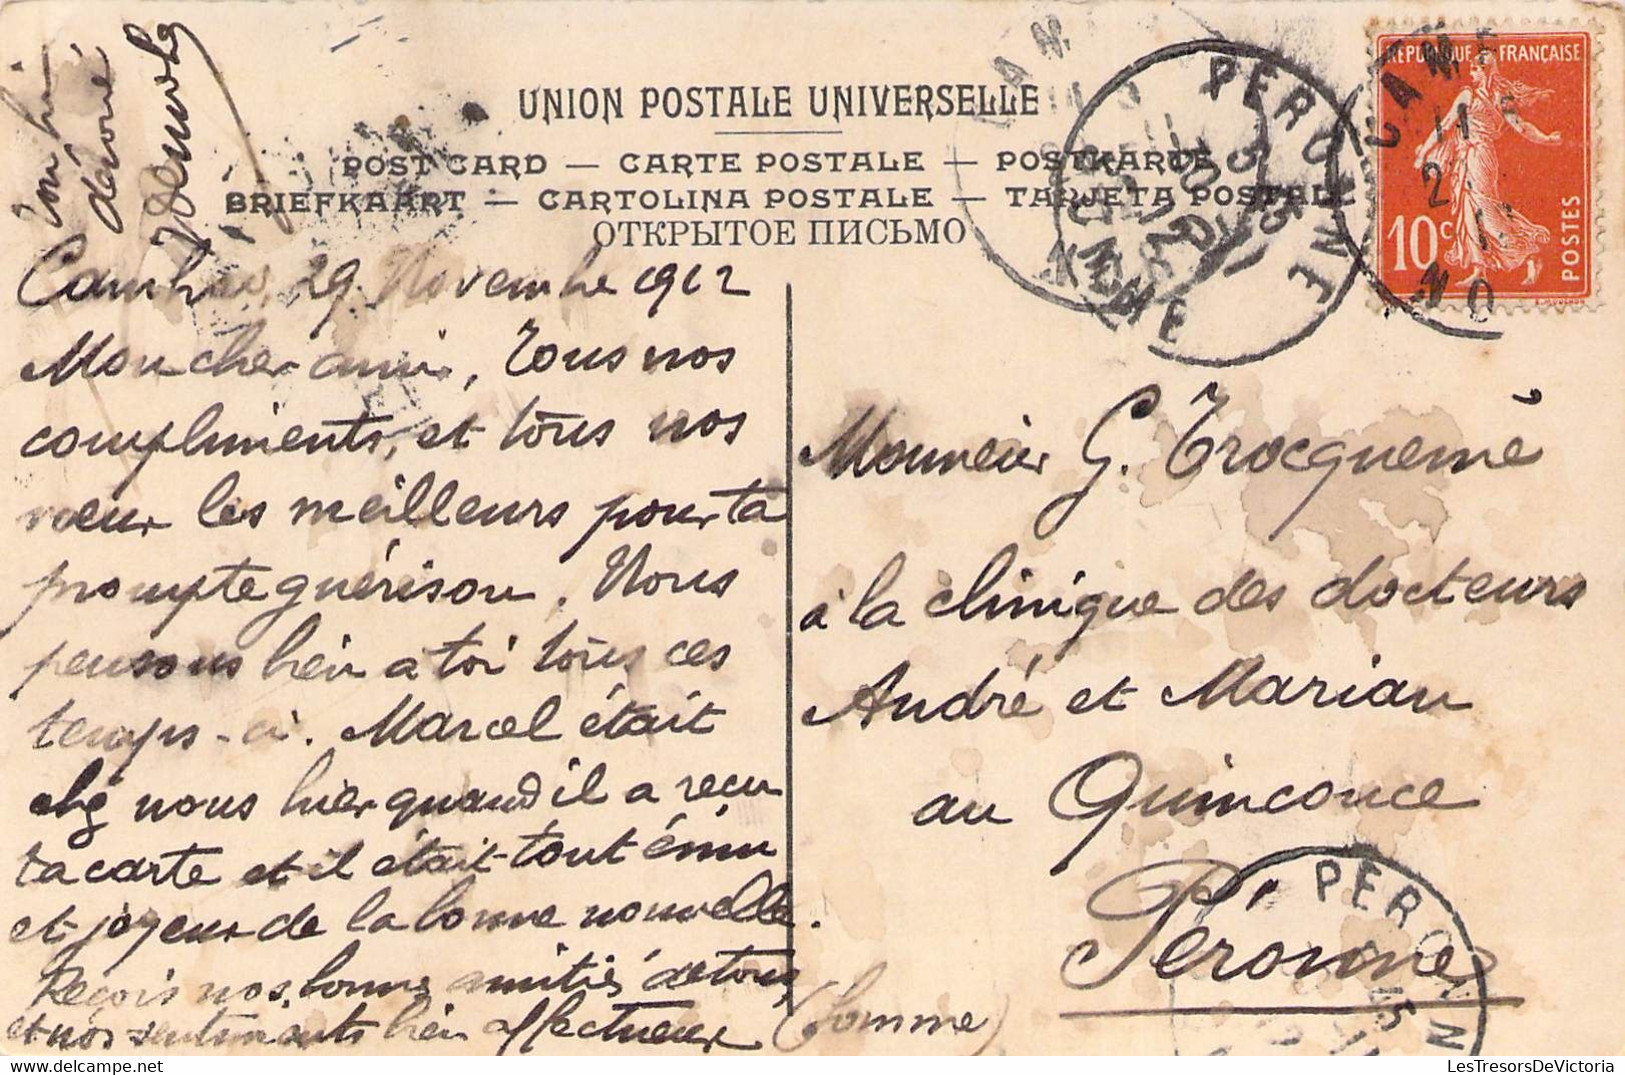 UNION POSTALE UNIVERSELLE
POST CARD — CARTE POSTALE — POSTKARTE
BRIEFKAART — CARTOLINA POSTALE — TARJETA POSTALE
ОТКРЫТОЕ ПИСЬМО
REPUBLIQUE FRANÇAISE
10c
POSTES
PERONNE
SOMME
Cambrai, 29 Novembre 1912
Mon cher ami, Tous nos
compliments, et tous nos
vœux les meilleurs pour ta
prompte guérison. Nous
pensons bien à toi tous ces
temps-ci. Marcel était
chez nous hier quand il a reçu
ta carte et il était tout ému
et joyeux de la bonne nouvelle.
Reçois nos bonnes amitiés de tous,
et nos sentiments bien affectueux
Ton bien
dévoué
Monsieur G. Trocquemé
à la clinique des docteurs
André et Marian
au Quinconce
Péronne
(Somme)
PERONNE
LesTresorsDeVictoria